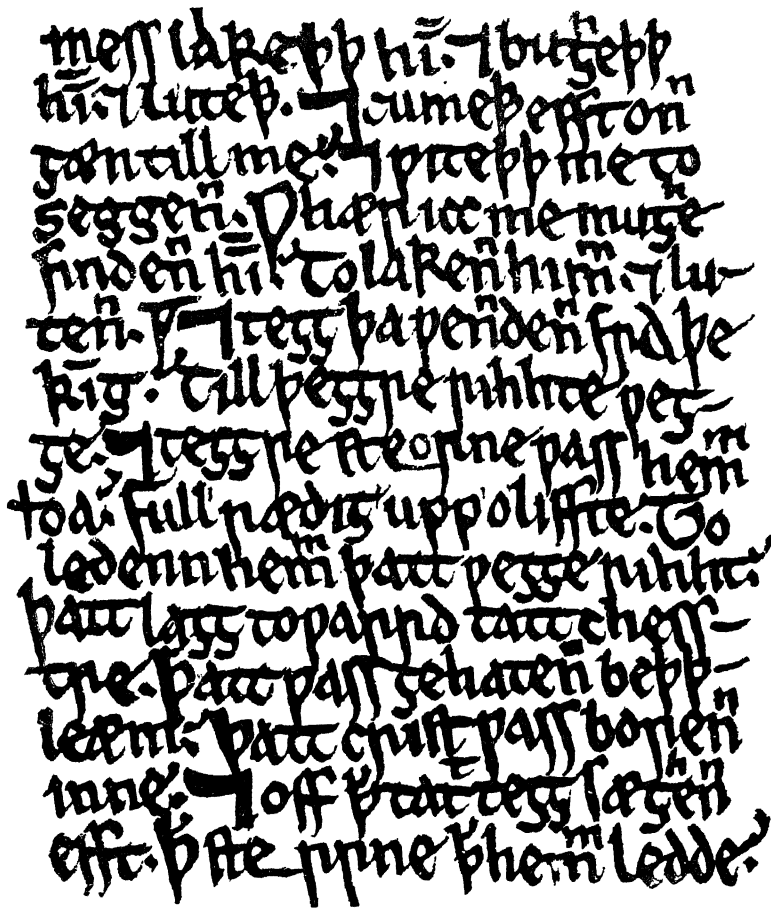 mess lakeþþ hi̿. ⁊ buȝͪeþþ
hi̿. ⁊ luteþþ. ⁊ cumeþþ efft onⁿ
ȝæn till me. ⁊ ƿiteþþ me to
seggenⁿ. Ƿhær icc me muȝͪe
findenⁿ hi̿. To lakenⁿ himᵐ. ⁊ lu-
tenⁿ. ꝥ ⁊ teȝȝ þa ƿenⁿdenⁿ fra þe
kīg. Till þeȝȝre rihhte ƿeȝ-
ȝe. ⁊ teȝȝre steorrne ƿass hemᵐ
þoa. full rædiȝ upp o liffte. To
ledenn hemᵐ þatt ƿeȝȝe rihht.
þatt laȝȝ toƿarrd tatt chess-
tre. þatt ƿass ȝehatenⁿ beþþ-
leæm. þatt crist ƿass borenⁿ
inne. ⁊ off ꝥ tatt teȝȝ sæȝͪenⁿ
efft. ꝥ steorrne ꝥ hemᵐ ledde.